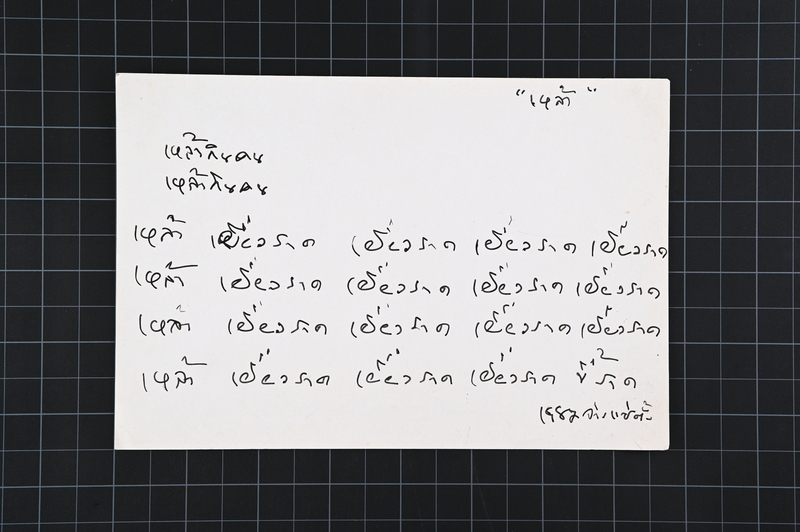 "เหล้า"
เหล้ากินคน
เหล้ากินคน
เหล้า เยี่ยวราด เยี่ยวราด เยี่ยวราด เยี่ยวราด
เหล้า เยี่ยวราด เยี่ยวราด เยี่ยวราด เยี่ยวราด
เหล้า เยี่ยวราด เยี่ยวราด เยี่ยวราด เยี่ยวราด
เหล้า เยี่ยวราด เยี่ยวราด เยี่ยวราด ขี้ราด